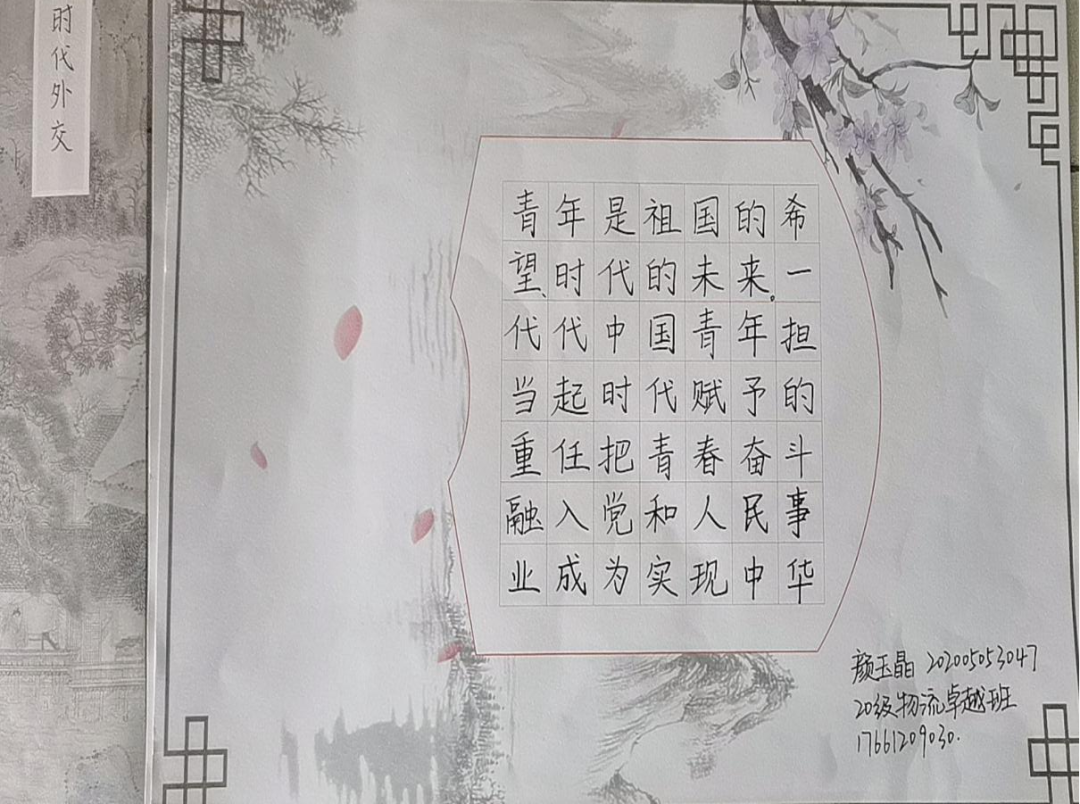 时代外交
青年是祖国的希
望、时代的未来。一
代代中国青年担
当起时代赋予的
重任把青春奋斗
融入党和人民事
业成为实现中华
颜玉晶 202005053047
20级物流卓越班
17661209030.